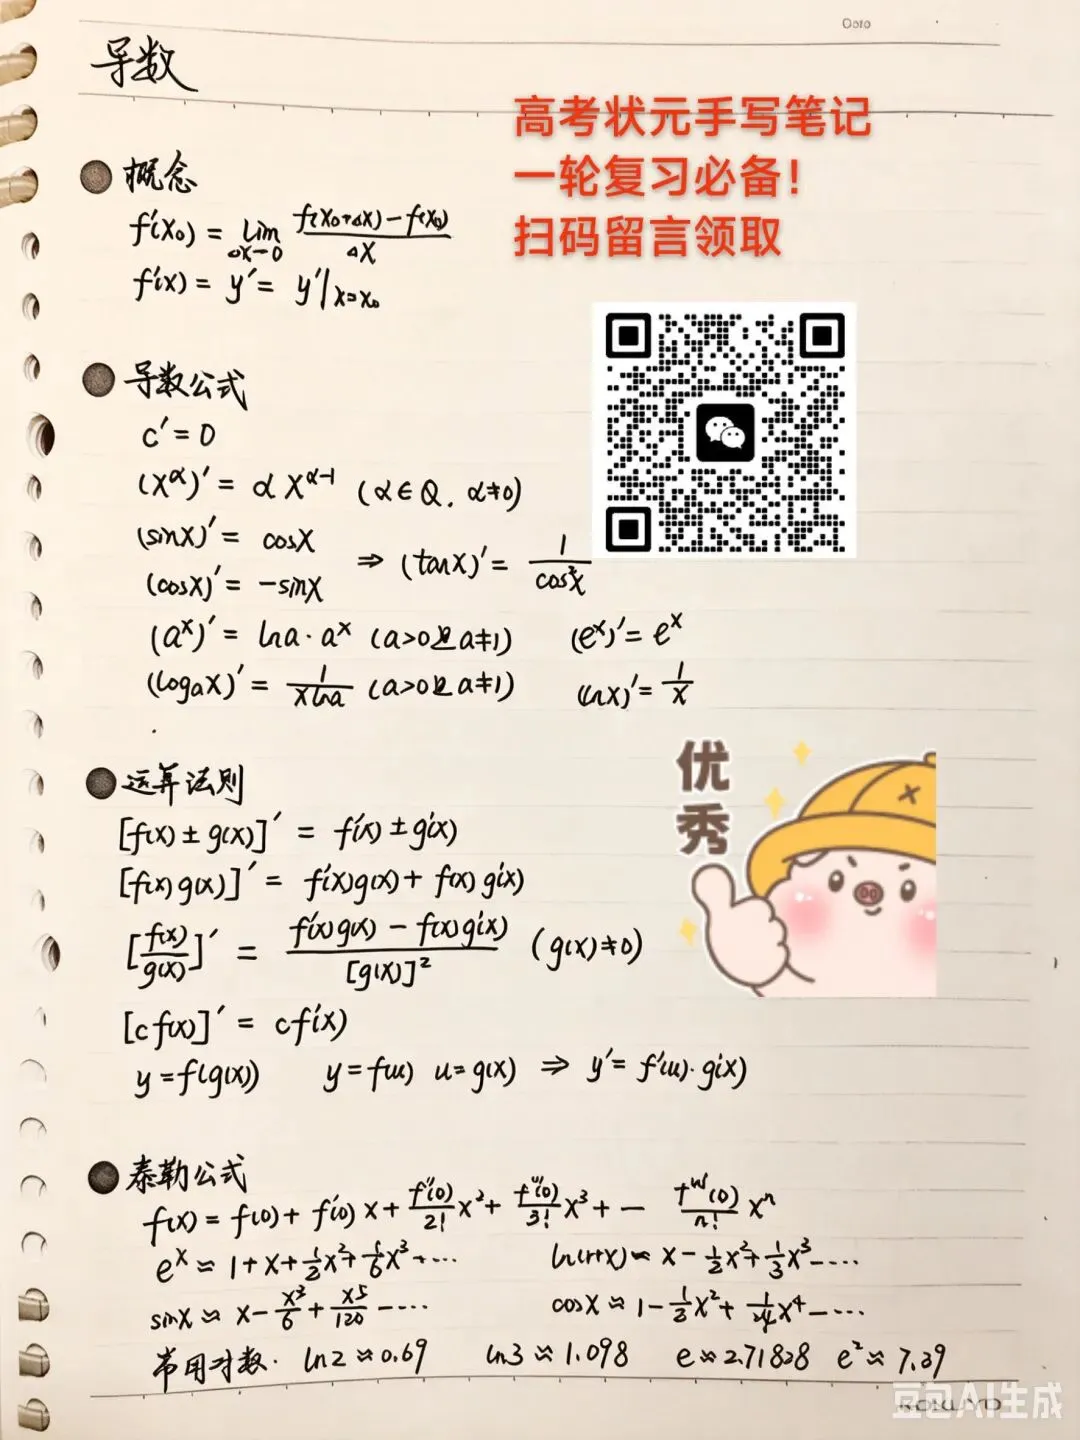 Date
导数
高考状元手写笔记
一轮复习必备！
扫码留言领取
概念
f'(x₀) = lim Δx→0 f(x₀+Δx)-f(x₀) / Δx
f'(x) = y' = y'|x=x₀
导数公式
c' = 0
(x^α)' = αx^(α-1) (α∈Q, α≠0)
(sinx)' = cosx
(cosx)' = -sinx
⇒ (tanx)' = 1/cos²x
(a^x)' = lna·a^x (a>0且a≠1) (e^x)' = e^x
(logₐx)' = 1/xlna (a>0且a≠1) (lnx)' = 1/x
运算法则
优秀
[f(x)±g(x)]' = f'(x)±g'(x)
[f(x)g(x)]' = f'(x)g(x)+f(x)g'(x)
[f(x)/g(x)]' = f'(x)g(x)-f(x)g'(x) / [g(x)]² (g(x)≠0)
[cf(x)]' = cf'(x)
y=f(g(x)) y=f(u) u=g(x) ⇒ y'=f'(u)·g'(x)
泰勒公式
f(x) = f(0)+f'(0)x+f''(0)/2! x²+f'''(0)/3! x³+— f⁽ⁿ⁾(0)/n! xⁿ
e^x ≈ 1+x+1/2x²+1/6x³+… ln(1+x) ≈ x-1/2x²+1/3x³-…
sinx ≈ x-x³/6+x⁵/120-… cosx ≈ 1-1/2x²+1/24x⁴-…
常用对数. ln2≈0.69 ln3≈1.098 e≈2.71828 e²≈7.39
KOKUYO
豆包AI生成